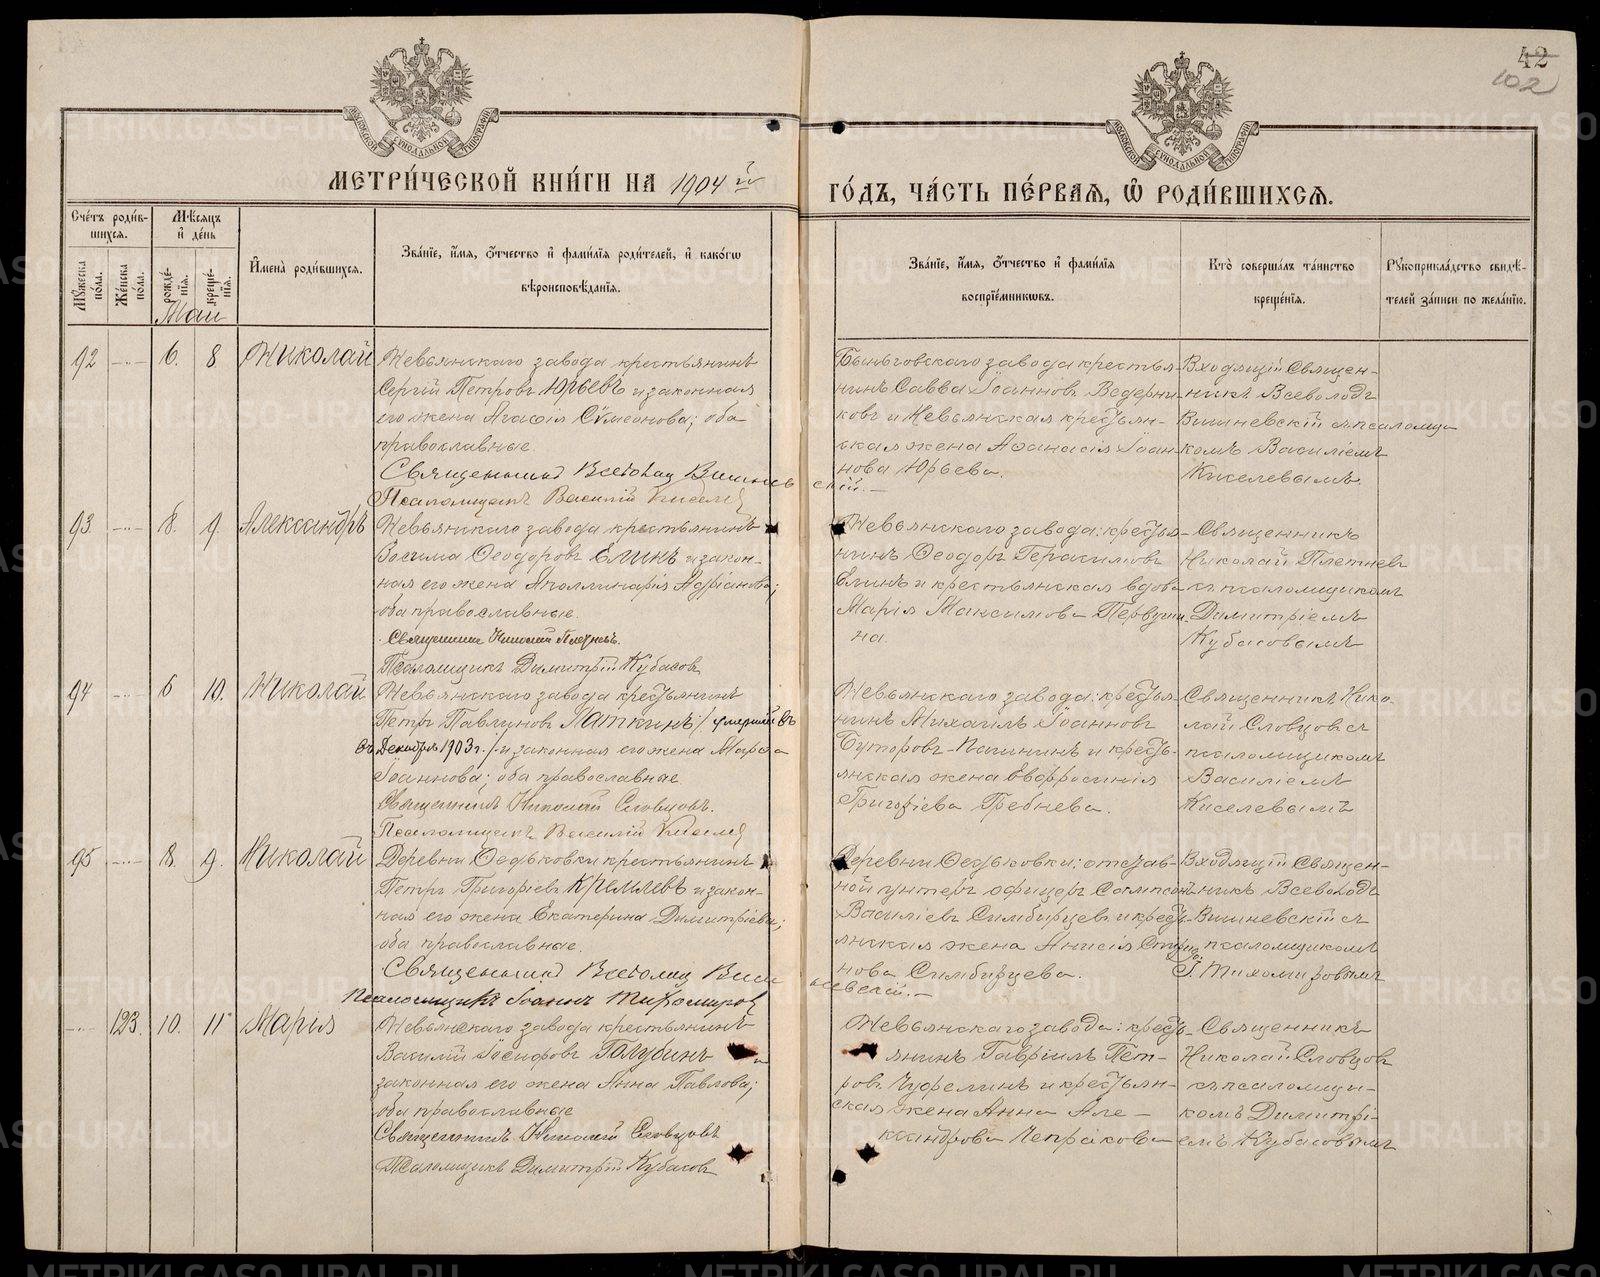 42
102
МЕТРИ́ЧЕСКОЙ КНИ́ГИ НА 1904 й
ГО́ДЪ, ЧА́СТЬ ПЕ́РВАЯ, Ѿ РОДИ́ВШИХСЯ.
Сче́тъ роди́в-
шихся.
Мѣ́сяцъ
и҆ де́нь
Мꙋ́жеска по́ла.
Же́нска по́ла.
рожде́-
нїя.
креще́-
нїя.
И҆мена̀ роди́вшихся.
Зва́нїе, и҆́мя, ѻ҆́тчество и҆ фами́лїя роди́телей, и҆ како́гѡ
вѣроисповѣ́данїя.
Зва́нїе, и҆́мя, ѻ҆́тчество и҆ фами́лїя
воспрїе́мникѡвъ.
Кто̀ соверша́лъ та́инство
креще́нїя.
Рꙋкоприкла́дство свидѣ́-
телей за́писи по жела́нїю.
Май
92 —"— 6. 8 Николай
Невьянскаго завода крестьянинъ
Сергій Петровъ Юрьевъ и законная
его жена Агафія Сѵмеонова; оба
православные.
Священникъ Всеволод Вишнев
ский.—
Псаломщикъ Василій Киселев
Быньговскаго завода крестья-
нинъ Савва Іоанновъ Ведерни-
ковъ и Невьянская крестьян-
ская жена Афанасія Іоан-
нова Юрьева.
Входящій Священ-
никъ Всеволодъ
Вишневскій съ псаломщи-
комъ Василіемъ
Киселевымъ.
93 —"— 8. 9. Александръ
Невьянскаго завода крестьянинъ
Зосима Ѳеодоровъ Елинъ и закон-
ная его жена Аполлинарія Адріанова;
оба православные.
Священникъ Николай Плетневъ.
Псаломщикъ Димитрій Кубасов
Невьянскаго завода: крестья-
нинъ Ѳеодоръ Герасимовъ
Елинъ и крестьянская вдова
Марія Максимова Первуши-
на.
Священникъ
Николай Плетнев
съ псаломщикомъ
Димитріемъ
Кубасовымъ
94 —"— 6 10. Николай
Невьянскаго завода крестьянинъ
Петръ Павлунов Латкинъ /умерший
въ Декабрѣ 1903 г./ и законная его жена Марфа
Іоаннова; оба православные
Священникъ Николай Словцовъ.
Псаломщикъ Василій Киселев
Невьянскаго завода: крестья-
нинъ Михаилъ Іоанновъ
Буторовъ-Пашнинъ и кресть-
янская жена Евфросинія
Григоріева Гребнева.
Священникъ Нико-
лай Словцов съ
псаломщикомъ
Василіемъ
Киселевымъ
95 —"— 8. 9. Николай
Деревни Ѳедьковки крестьянинъ
Петръ Григоріев Кремлевъ и закон-
ная его жена Екатерина Димитріева;
оба православные.
Священникъ Всеволод Виш
невский.—
Псаломщикъ Іоаннъ Тихомиров
Деревни Ѳедьковки: отстав-
ной унтеръ офицеръ Сампсонъ
Василіевъ Симбирцевъ и кресть-
янская жена Анисія
нова Симбирцева.
Входящій Священ-
никъ Всеволодъ
Вишневскій съ
псаломщикомъ
І. Тихомировымъ
—"— 123. 10. 11 Марія
Невьянскаго завода крестьянинъ
Василій Іосифовъ Голубинъ и
законная его жена Анна Павлова;
оба православные
Священникъ Николай Словцовъ
Псаломщикъ Димитрій Кубасов
Невьянскаго завода: кресть-
янинъ Гавріилъ Пет-
ровъ Чуфелинъ и крестьян-
ская жена Анна Але-
ксандрова Чепракова
Священникъ
Николай Словцов
съ псаломщи-
комъ Димитрі-
емъ Кубасовымъ
METRIKI.GASO-URAL.RU